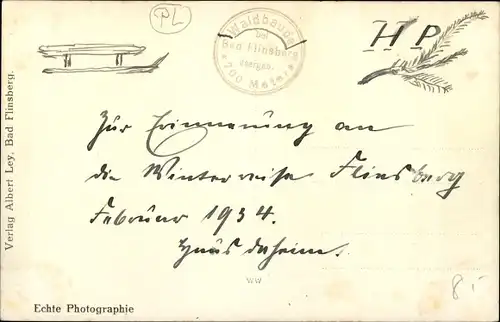 PL
Waldbaude
bei
Bad Flinsberg
Isergeb.
* 700 Meter *
H P
Zur Erinnerung an
die Winterreise Flinsberg
Februar 1934.
Haus daheim.
Verlag Albert Ley, Bad Flinsberg.
WW
Echte Photographie
8